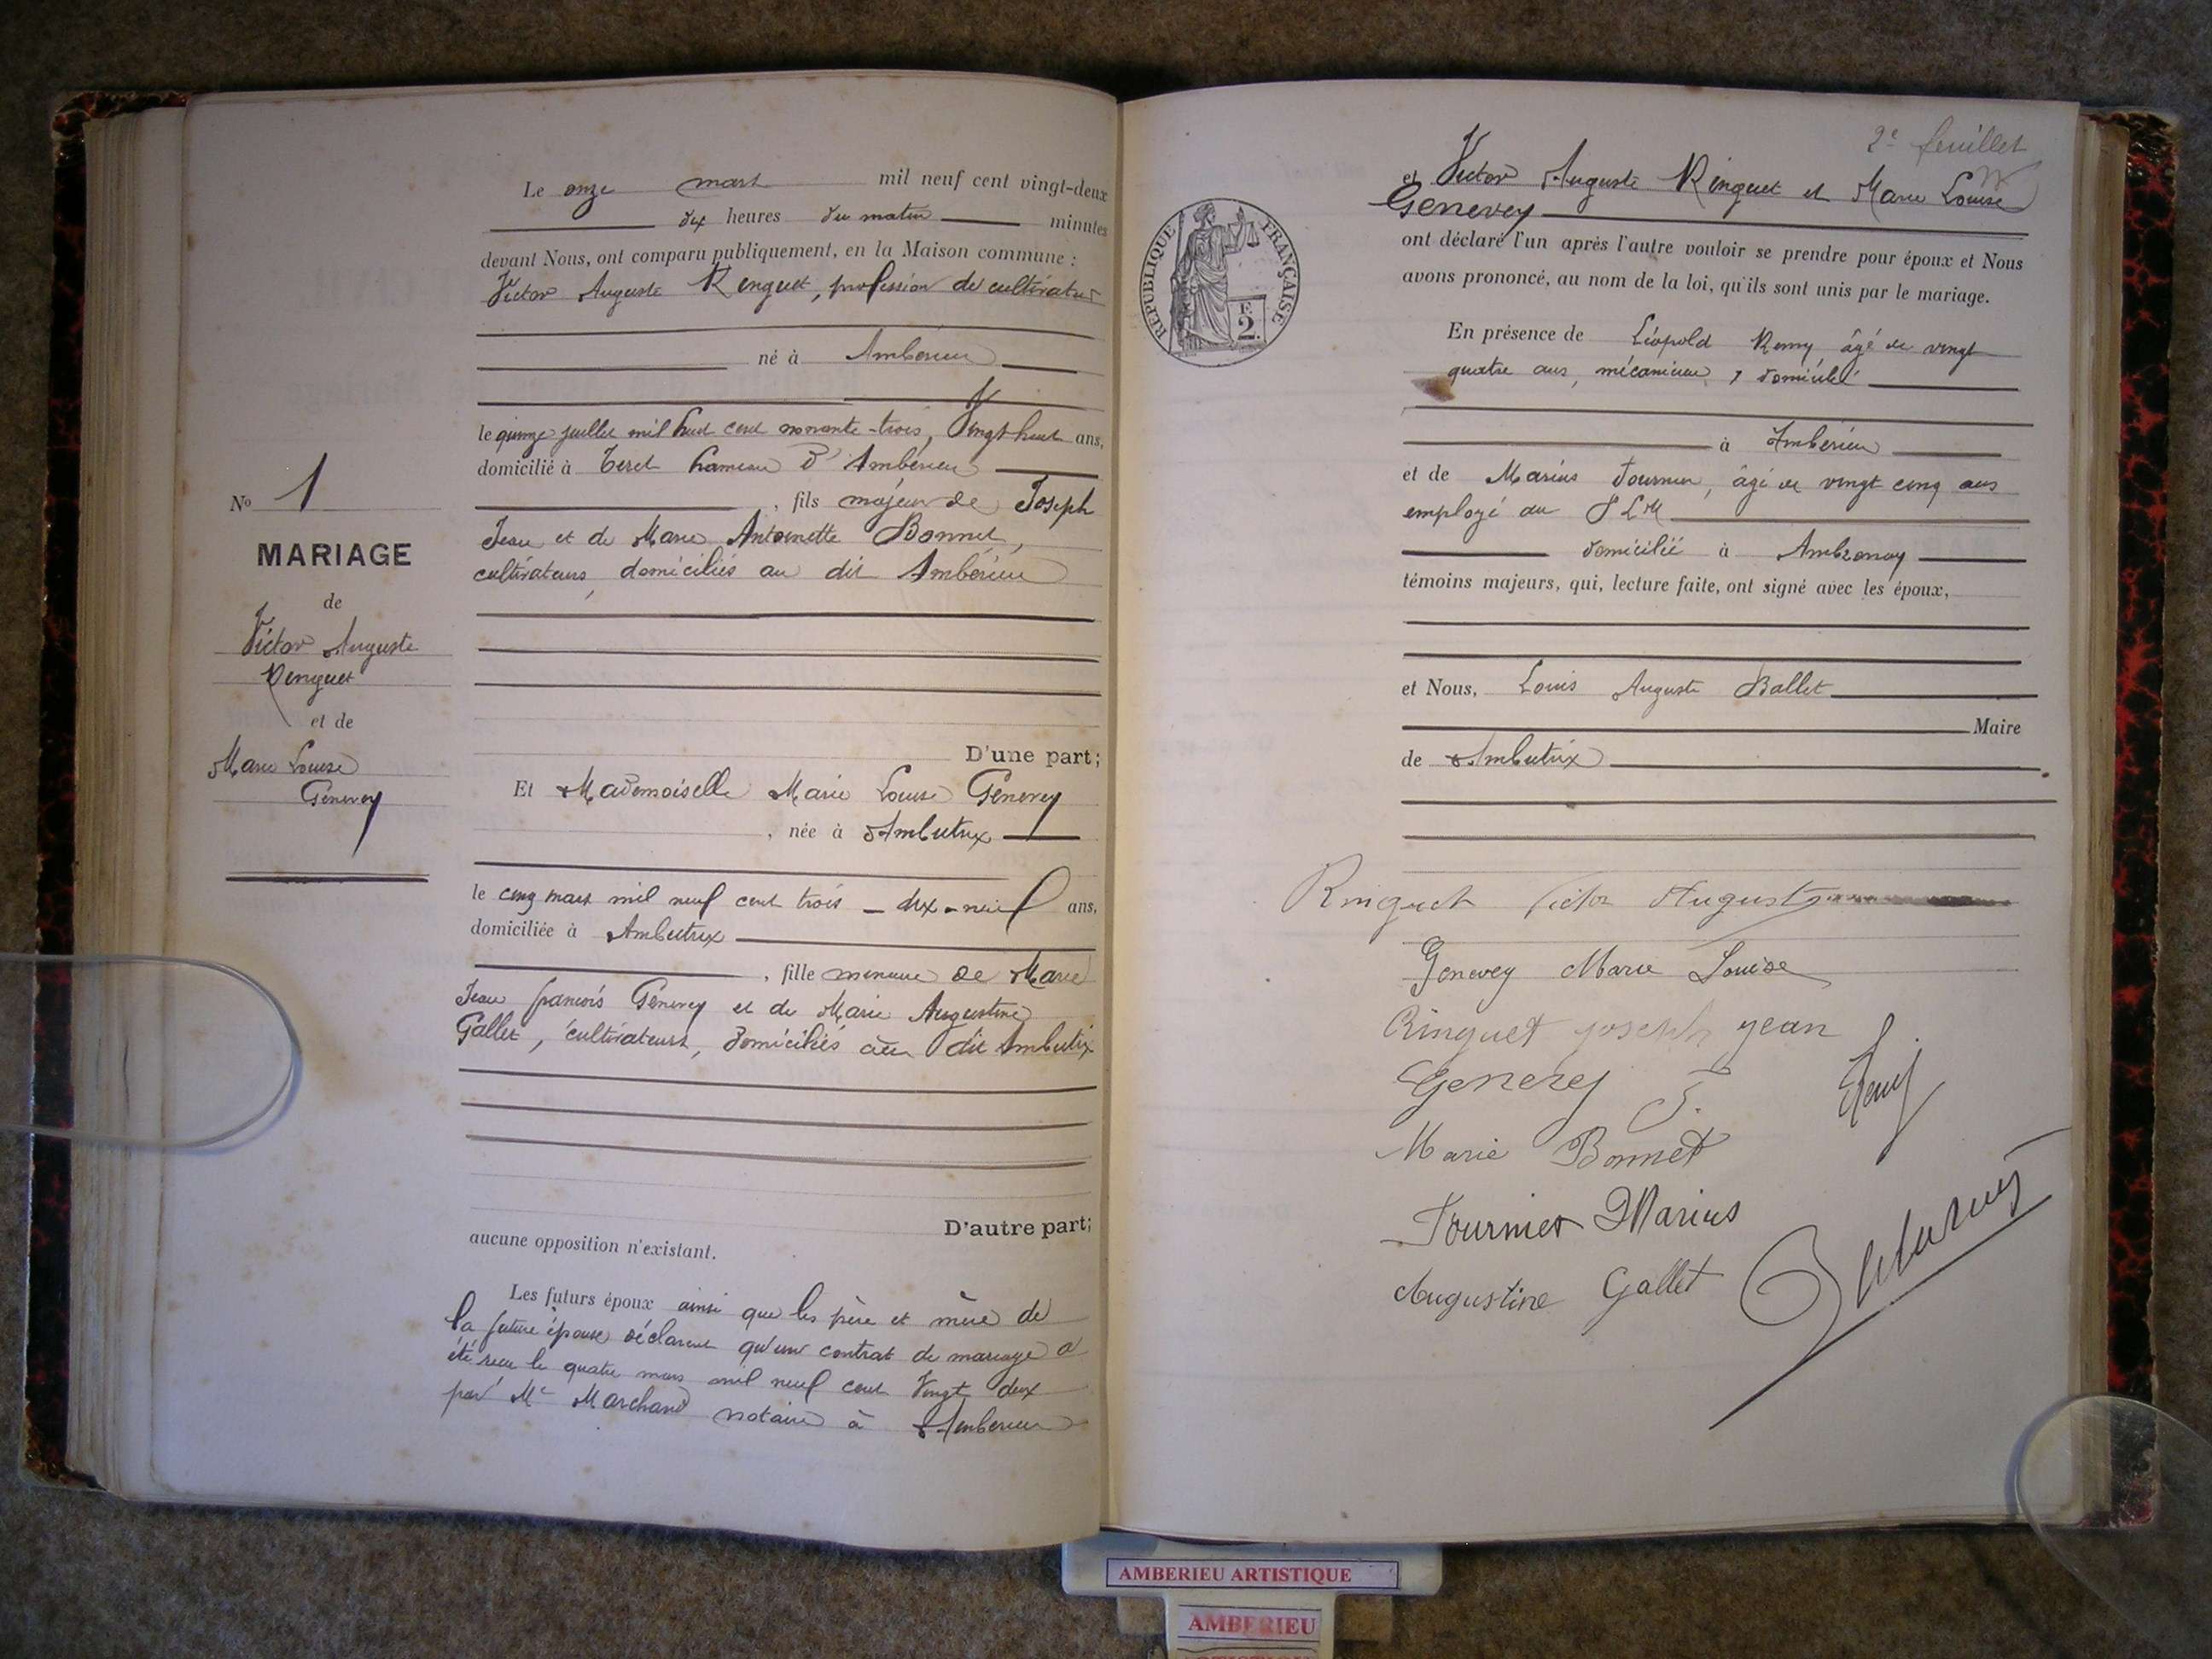 Le onze mars mil neuf cent vingt-deux
dix heures du matin minutes
devant Nous, ont comparu publiquement, en la Maison commune :
Victor Auguste Renguet, profession de cultivateur
né à Amberieu
le quinze juillet mil huit cent nonante-trois, Vingt huit ans,
domicilié à hameau d'Amberieu
, fils majeur de Joseph
Jean et de Marie Antoinette Bonnet,
cultivateurs, domiciliés au dit Ambérieu
No 1
MARIAGE
de
Victor Auguste
Renguet
et de
Marie Louise
Genevey
D'une part;
Et Mademoiselle Marie Louise Genevey
, née à Ambutrix
le cinq mars mil neuf cent trois - dix-neuf ans,
domiciliée à Ambutrix
, fille mineure de Marie
Jean françois Genevey et de Marie Augustine
Gallet, cultivateurs, domiciliés au dit Ambutrix
D'autre part;
aucune opposition n'existant.
Les futurs époux ainsi que les père et mère de
la future épouse déclarent qu'un contrat de mariage a
été reçu le quatre mars mil neuf cent Vingt deux
par Me Marchand notaire à Amberieu
2e feuillet
et Victor Auguste Ringuet et Marie Louise
Genevey
ont déclaré l'un après l'autre vouloir se prendre pour époux et Nous
avons prononcé, au nom de la loi, qu'ils sont unis par le mariage.
RÉPUBLIQUE FRANÇAISE
2 F.
En présence de Léopold Remy, âgé de vingt
quatre ans, mécanicien, domicilié
à Ambérieu
et de Marius Fournier, âgé de vingt cinq ans
employé au PLM
domicilié à Ambronay
témoins majeurs, qui, lecture faite, ont signé avec les époux,
et Nous, Louis Auguste Ballet
Maire
de Ambutrix
Ringuet Victor Auguste
Genevey Marie Louise
Ringuet joseph jean
Genevey J.
Remy
Marie Bonnet
Fournier Marius
Augustine Gallet
AMBERIEU ARTISTIQUE
AMBERIEU
ARTISTIQUE